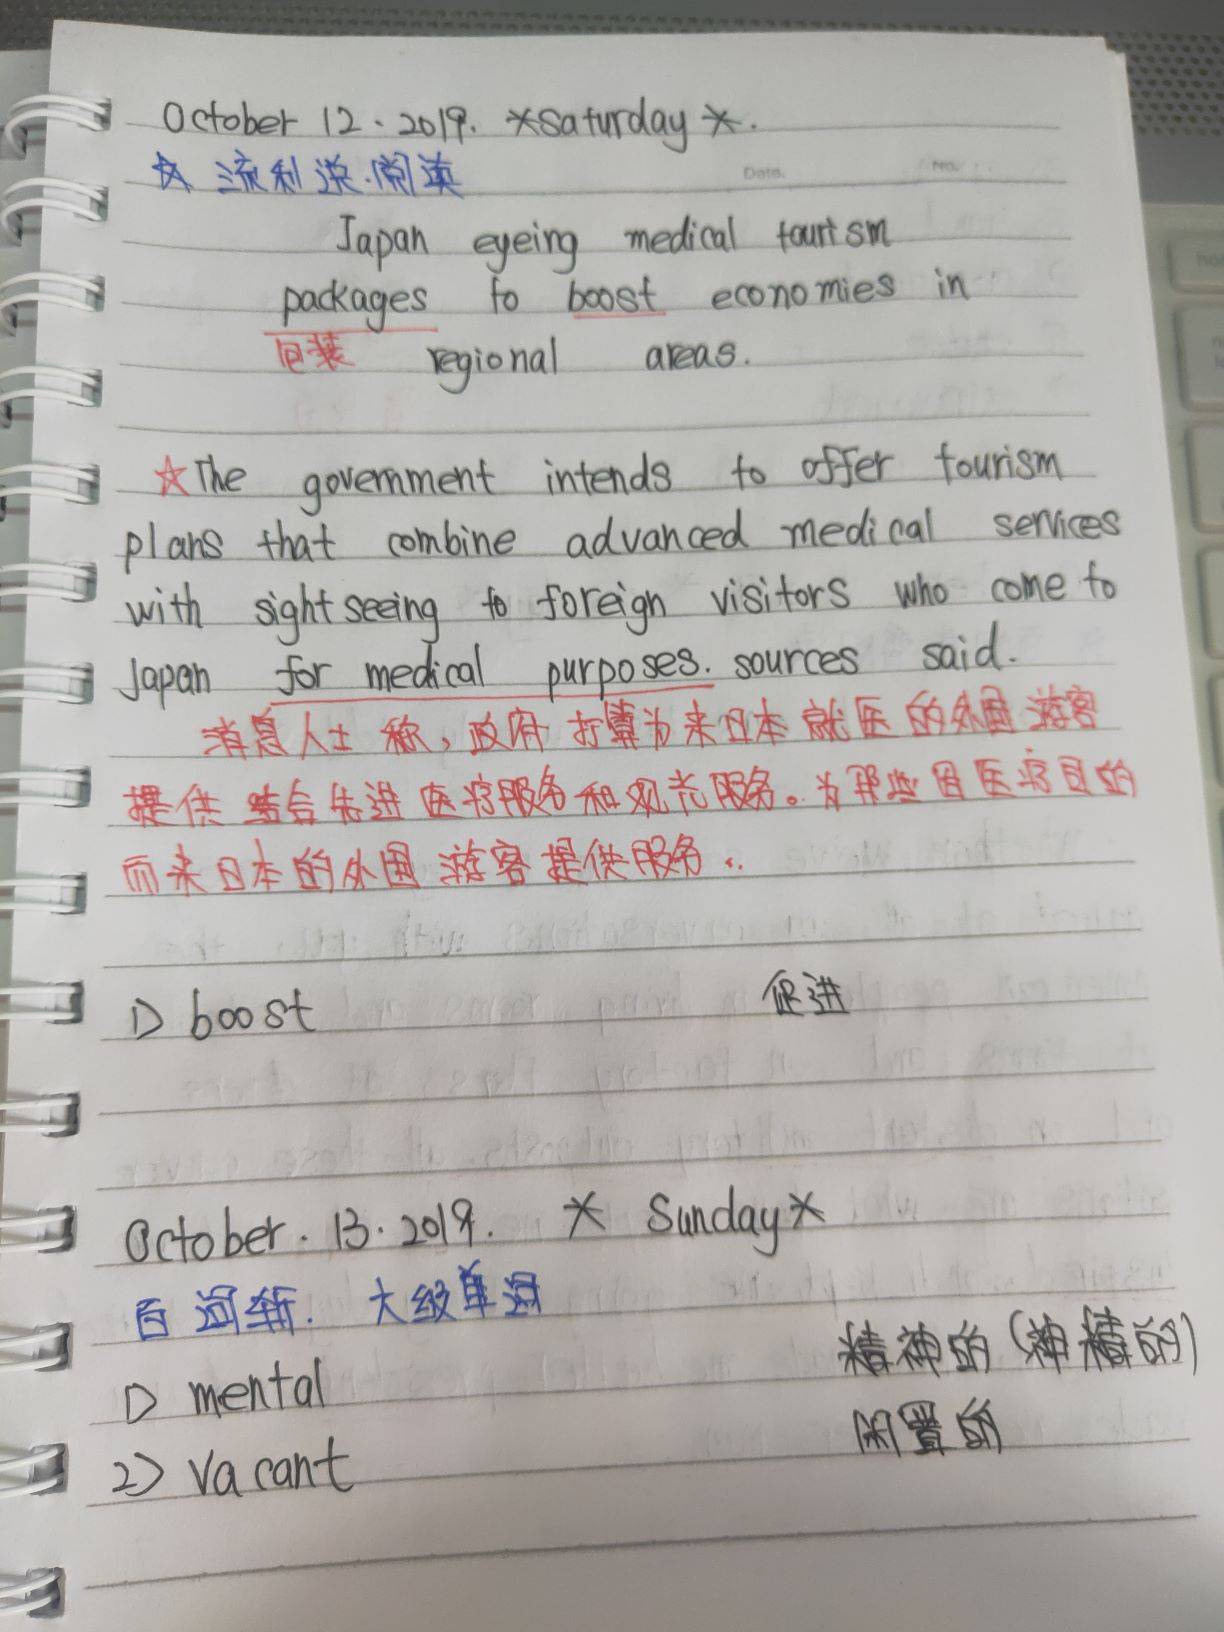 October 12. 2019. *Saturday *.
☆ 流利说.阅读
Date. No.
Japan eyeing medical tourism
packages to boost economies in
包装 regional areas.
☆The government intends to offer tourism
plans that combine advanced medical services
with sightseeing to foreign visitors who come to
Japan for medical purposes. sources said.
消息人士称,政府打算为来日本就医的外国游客
提供结合先进医疗服务和观光服务。为那些因医疗目的
而来日本的外国游客提供服务..
1) boost 促进
October. 13. 2019. * Sunday *
百词斩. 六级单词
1) mental 精神的(神精的)
2) vacant 闲置的